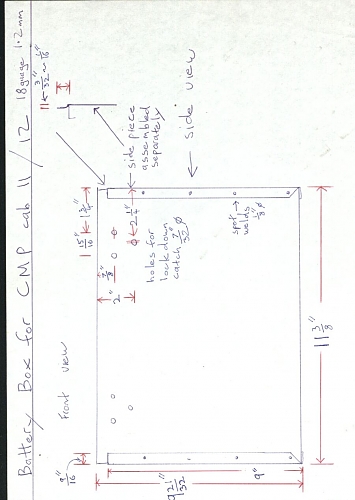 Battery Box for CMP cab 11 / 12
18 guage 1.2mm
Front view
side view
side piece
assembled
separately
3/32" ~ 1/16"
1 15/16"
1 3/4"
2 1/4"
7/8"
2"
holes for
lock down
catch 7/32" ø
spot
welds
1/8" ø
9/16"
9 21/32"
9"
11 3/8"